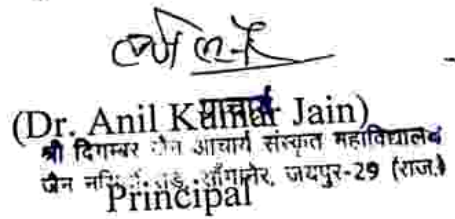 (Dr. Anil Kumar Jain)
प्राचार्य
श्री दिगम्बर जैन आचार्य संस्कृत महाविद्यालय
जैन सांगानेर, जयपुर-29 (राज.)
Principal